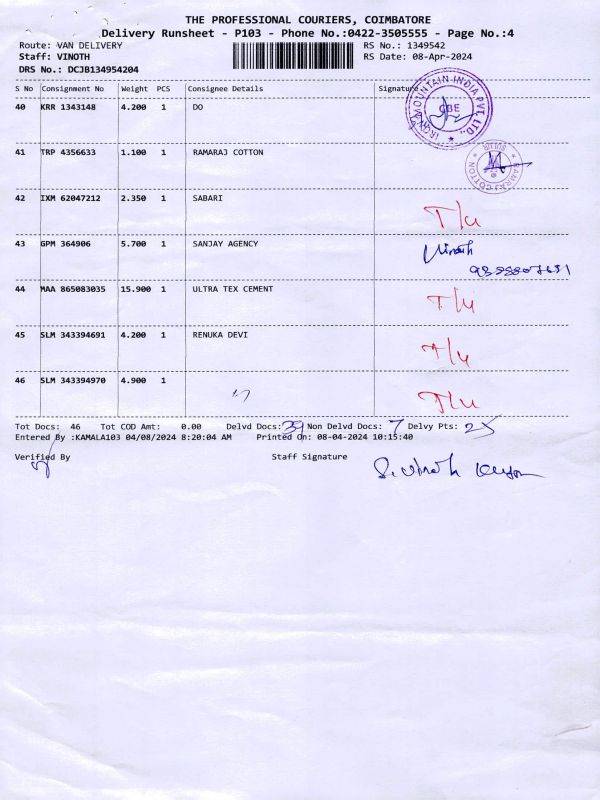 THE PROFESSIONAL COURIERS, COIMBATORE
Delivery Runsheet - P103 - Phone No.:0422-3505555 - Page No.:4
Route: VAN DELIVERY RS No.: 1349542
Staff: VINOTH RS Date: 08-Apr-2024
DRS No.: DCJB134954204
S No Consignment No Weight PCS Consignee Details Signature
40 KRR 1343148 4.200 1 DO
IRON MOUNTAIN INDIA PVT. LTD. CBE
41 TRP 4356633 1.100 1 RAMARAJ COTTON
RAMRAJ COTTON
42 IXM 62047212 2.350 1 SABARI T/U
43 GPM 364906 5.700 1 SANJAY AGENCY Vinoth
44 MAA 865083035 15.900 1 ULTRA TEX CEMENT T/U
45 SLM 343394691 4.200 1 RENUKA DEVI T/U
46 SLM 343394970 4.900 1 T/U
Tot Docs: 46 Tot COD Amt: 0.00 Delvd Docs: 39 Non Delvd Docs: 7 Delvy Pts: 25
Entered By :KAMALA103 04/08/2024 8:20:04 AM Printed On: 08-04-2024 10:15:40
Verified By Staff Signature